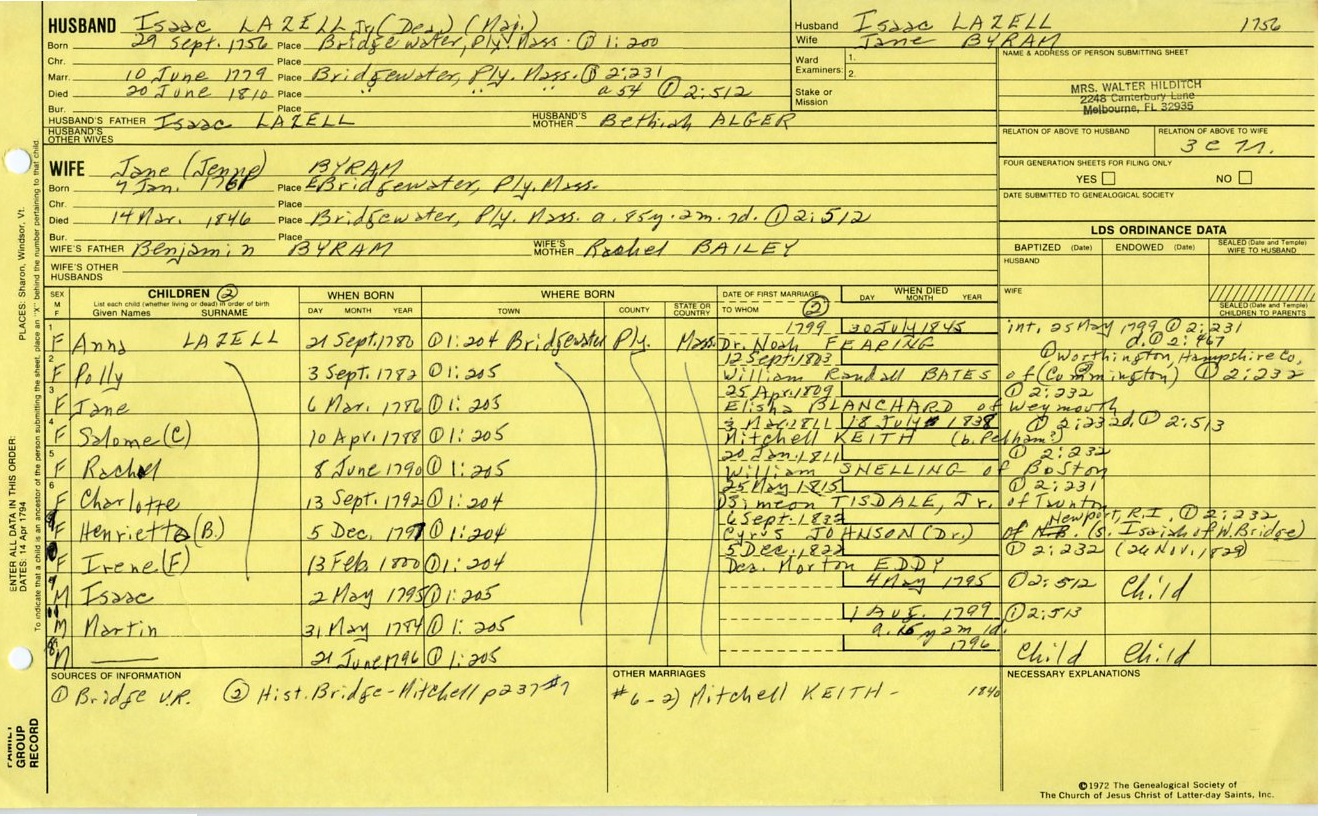 HUSBAND Isaac LAZELL Jr (Dea.) (Maj.)
Born 29 Sept. 1756 Place Bridgewater, Ply. Mass. ① 1:200
Chr. Place
Marr. 10 June 1779 Place Bridgewater, Ply. Mass. ① 2:231
Died 20 June 1810 Place " " " a 54 ① 2:512
Bur. Place
HUSBAND'S FATHER Isaac LAZELL HUSBAND'S MOTHER Bethiah ALGER
HUSBAND'S OTHER WIVES
Husband Isaac LAZELL 1756
Wife Jane BYRAM
Ward 1.
Examiners: 2.
Stake or Mission
NAME & ADDRESS OF PERSON SUBMITTING SHEET
MRS. WALTER HILDITCH
2248 Canterbury Lane
Melbourne, FL 32935
RELATION OF ABOVE TO HUSBAND RELATION OF ABOVE TO WIFE
3 c
FOUR GENERATION SHEETS FOR FILING ONLY
YES NO
DATE SUBMITTED TO GENEALOGICAL SOCIETY
WIFE Jane (Jenne) BYRAM
Born 7 Jan. 1761 Place E Bridgewater, Ply. Mass.
Chr. Place
Died 14 Mar. 1846 Place Bridgewater, Ply. Mass. a. 85y. 2m. 7d. ① 2:512
Bur. Place
WIFE'S FATHER Benjamin BYRAM WIFE'S MOTHER Rachel BAILEY
WIFE'S OTHER HUSBANDS
LDS ORDINANCE DATA
BAPTIZED (Date) ENDOWED (Date) SEALED (Date and Temple) WIFE TO HUSBAND
HUSBAND
WIFE
SEALED (Date and Temple) CHILDREN TO PARENTS
SEX M F CHILDREN ② WHEN BORN WHERE BORN DATE OF FIRST MARRIAGE ② WHEN DIED
List each child (whether living or dead) in order of birth
Given Names SURNAME DAY MONTH YEAR TOWN COUNTY STATE OR COUNTRY TO WHOM DAY MONTH YEAR
1 1799 30 July 1845 int. 25 May 1799 ① 2:231
F Anna LAZELL 21 Sept. 1780 ① 1:204 Bridgewater Ply. Mass. Dr. Noah FEARING d. ① 2:467
2 12 Sept. 1803 ① Worthington, Hampshire Co.
F Polly 3 Sept. 1782 ① 1:205 William Randall BATES of (Cummington) ① 2:232
3 25 Apr. 1809 ① 2:232
F Jane 6 Mar. 1786 ① 1:205 Elisha BLANCHARD of Weymouth
4 3 Mar. 1811 18 July 1838 ① 2:232 d. ① 2:513
F Salome (C) 10 Apr. 1788 ① 1:205 Mitchell KEITH (b. Pelham?)
5 20 Jan. 1811 ① 2:232
F Rachel 8 June 1790 ① 1:205 William SNELLING of Boston
6 25 May 1815 ① 2:231
F Charlotte 13 Sept. 1792 ① 1:204 Simeon TISDALE, Jr. of Taunton
6 Sept. 1832 Newport, R.I. ① 2:232
F Henrietta (B.) 5 Dec. 1797 ① 1:204 Cyrus JOHNSON (Dr.) of N.B. (s. Isaiah of W. Bridge)
5 Dec. 1822 ① 2:232 (24 Nov. 1822)
F Irene (F) 13 Feb. 1800 ① 1:204 Dea. Morton EDDY
9 4 May 1795 ① 2:512 Child
M Isaac 2 May 1795 ① 1:205
1 Aug. 1799 ① 2:513
M Martin 31 May 1784 ① 1:205 a. 15 y 2m 1d.
1796 Child Child
M —— 21 June 1796 ① 1:205
SOURCES OF INFORMATION
① Bridge V.R. ② Hist. Bridge-Mitchell p 237 #7
OTHER MARRIAGES
#6-2) Mitchell KEITH - 1840
NECESSARY EXPLANATIONS
©1972 The Genealogical Society of
The Church of Jesus Christ of Latter-day Saints, Inc.
PLACES: Sharon, Windsor, Vt.
To indicate that a child is an ancestor of the person submitting the sheet, place an "X" behind the number pertaining to that child.
ENTER ALL DATA IN THIS ORDER:
DATES: 14 Apr 1794
FAMILY GROUP RECORD